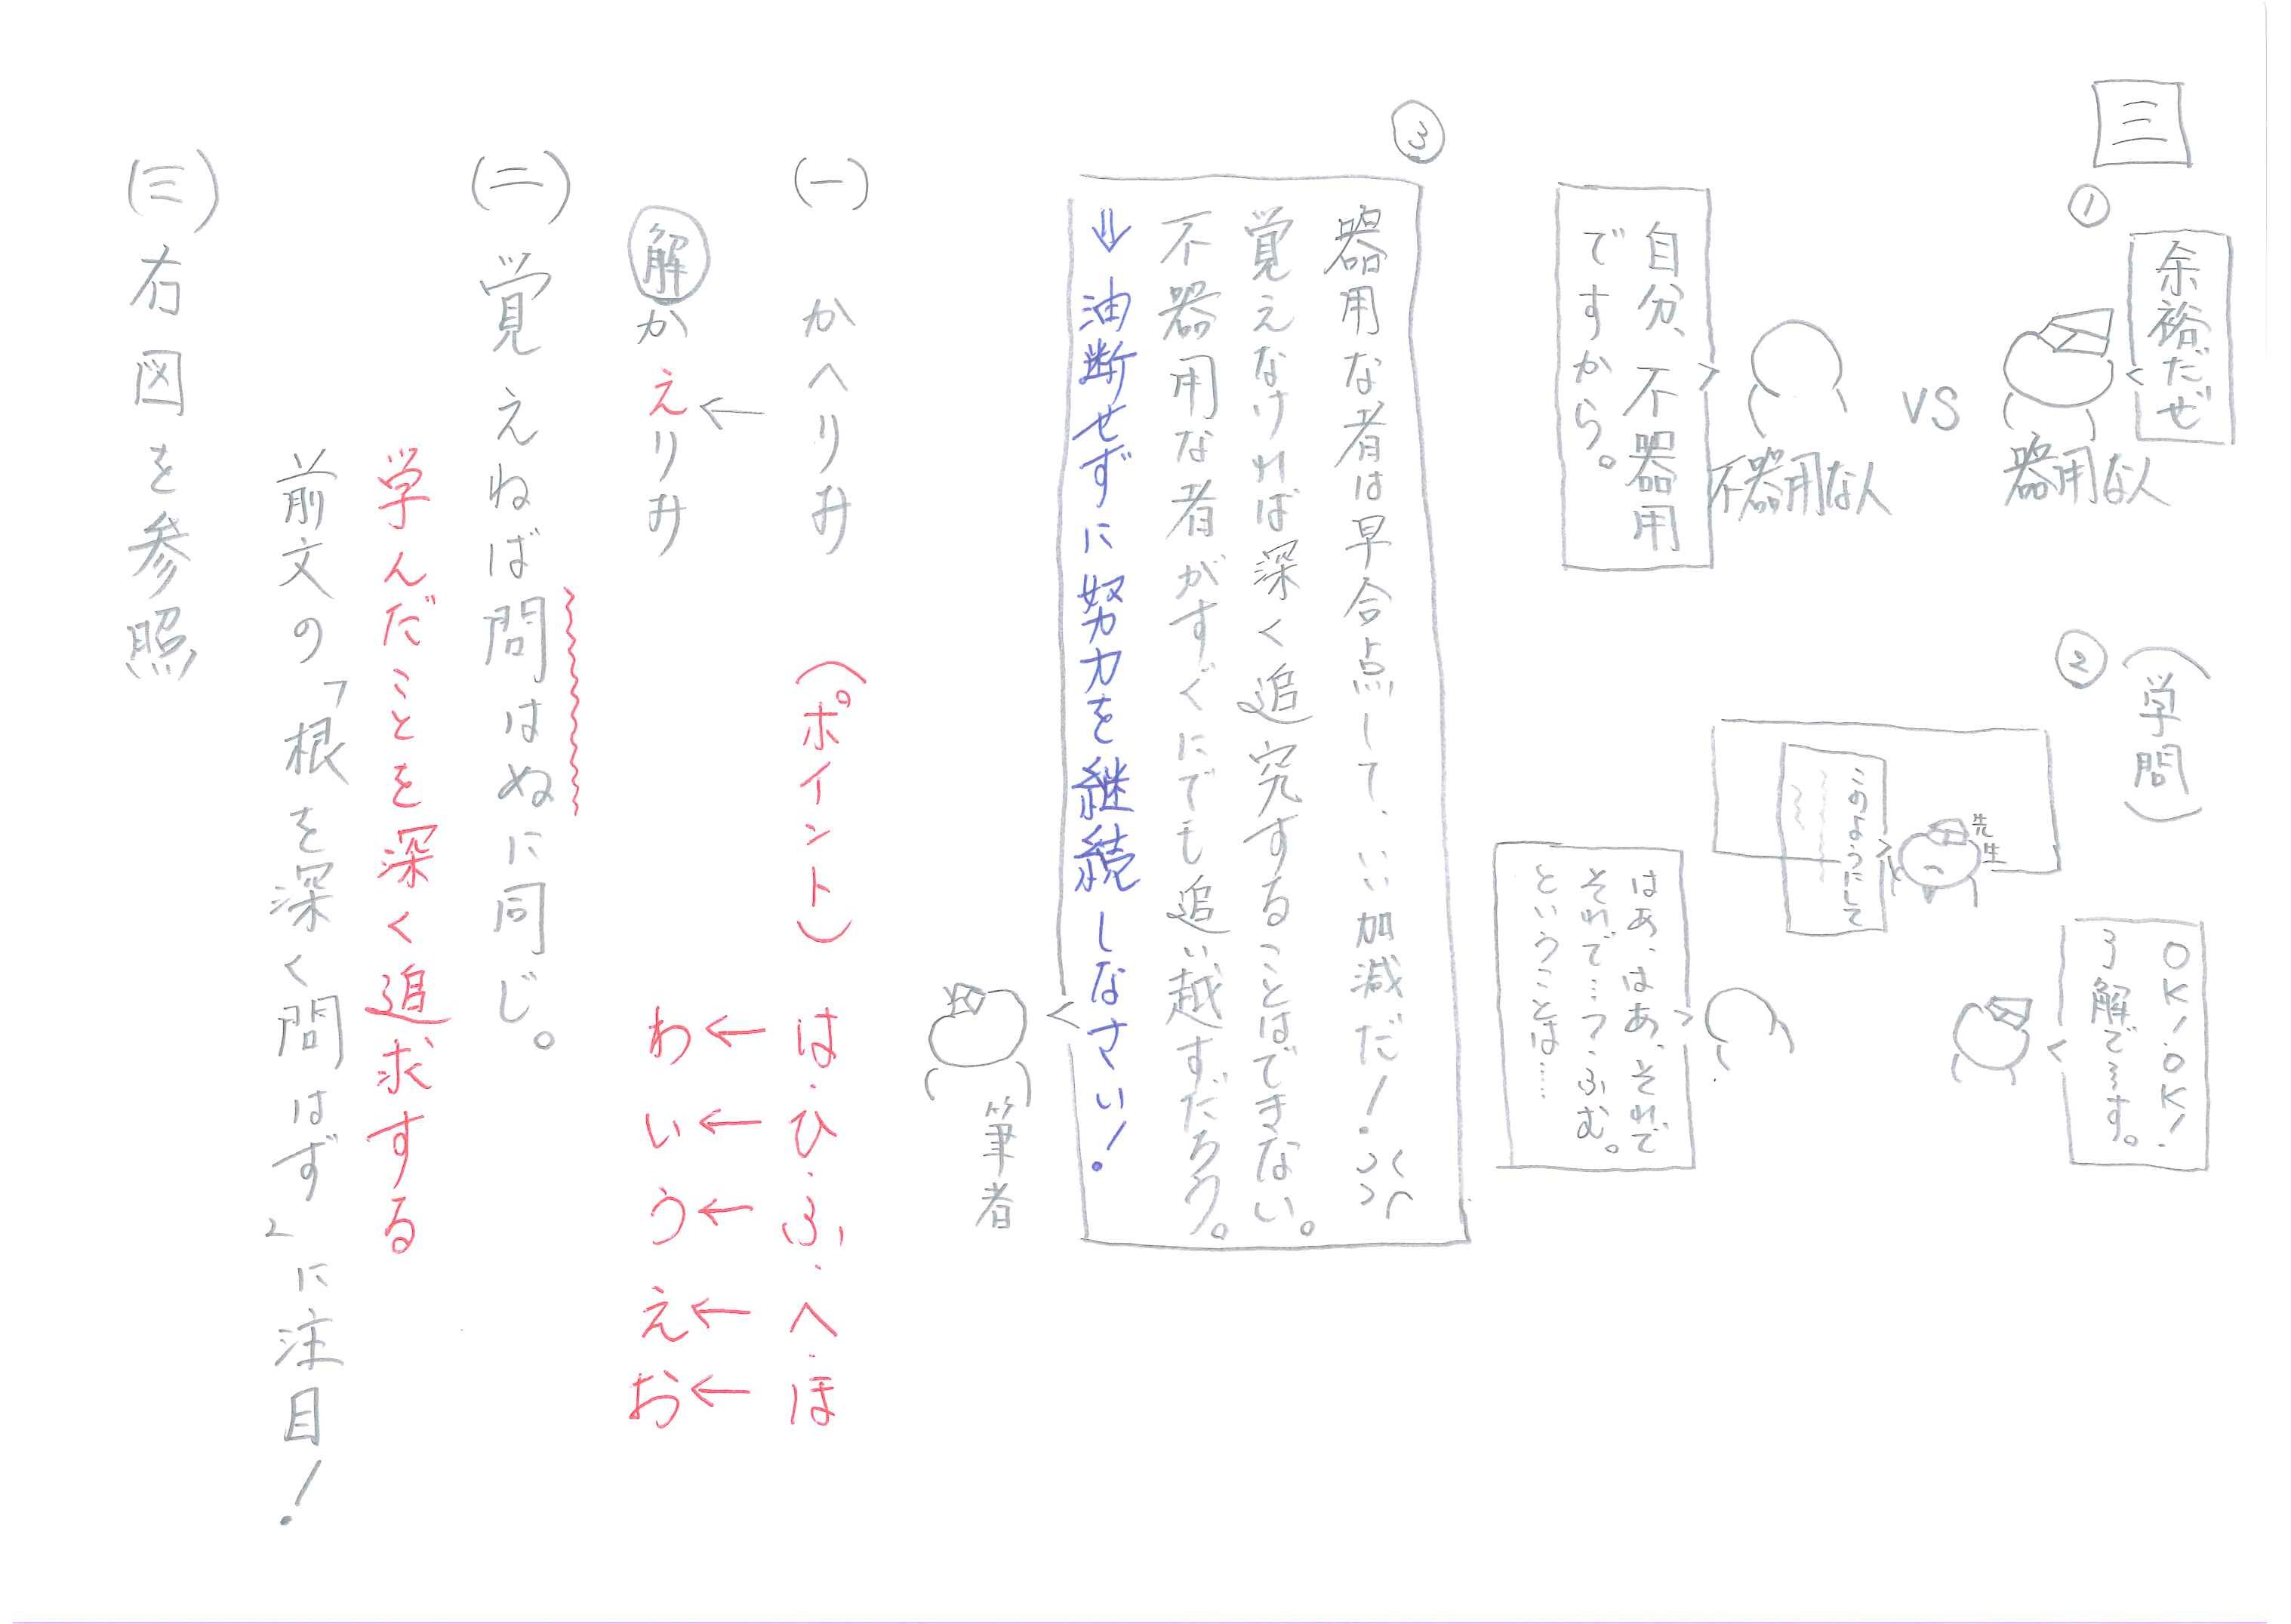 三
①
余裕だぜ
器用な人
VS
不器用な人
自分、不器用
ですから。
②
(学問)
先生
このようにして
OK!OK!
了解で〜す。
はあ、はあ、それで
それで…フ・ふむ。
ということは……
③
器用な者は早合点して、いい加減だ!
覚えなければ深く追究することはできない。
不器用な者がすぐにでも追い越すだろう。
⇒油断せずに努力を継続しなさい!
筆者
(一) かへりみ (ポイント) は・ひ・ふ・へ・ほ
↓ ↓ ↓ ↓ ↓ ↓
解 かえりみ わ い う え お
(二) 覚えねば問はぬに同じ。
学んだことを深く追求する
前文の「根を深く問はず」に注目!
(三) 右図を参照